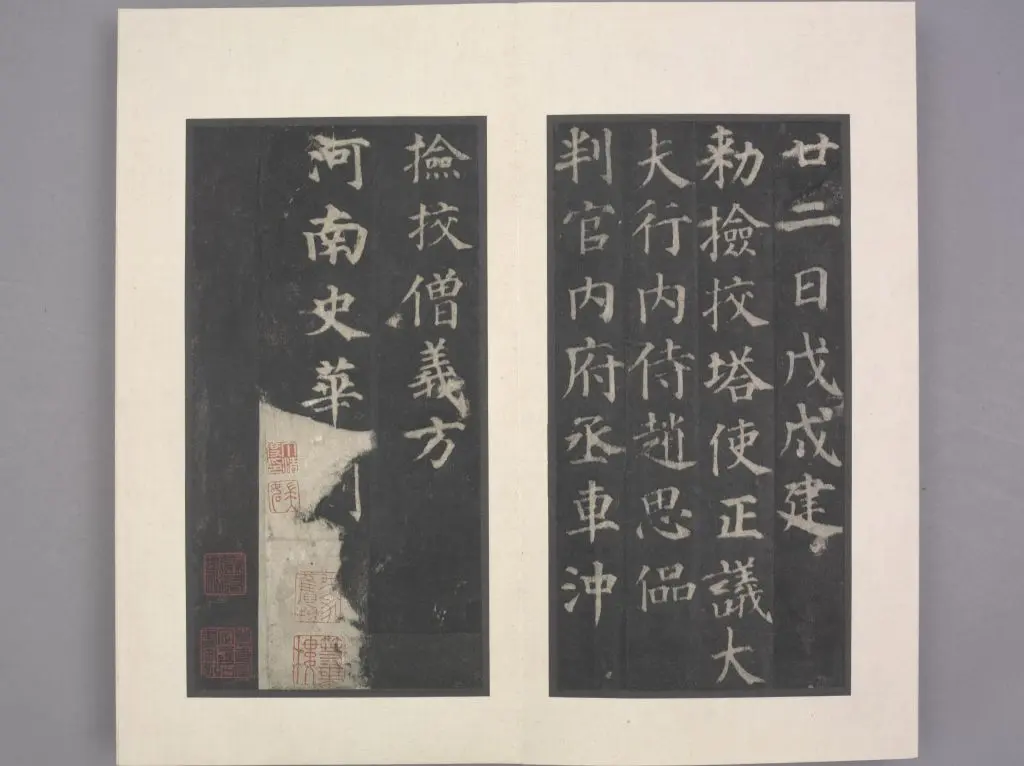 廿二日戊戌建
勅撿挍塔使正議大
夫行内侍趙思偘
判官内府丞車沖
撿挍僧義方
河南史華